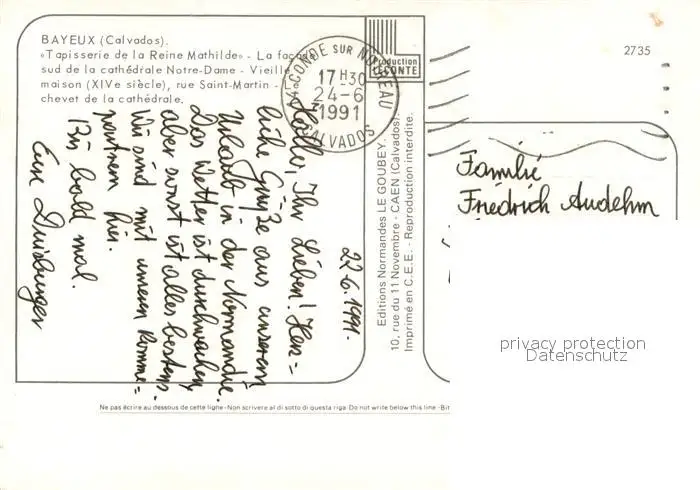 BAYEUX (Calvados).
«Tapisserie de la Reine Mathilde» - La façade
sud de la cathédrale Notre-Dame - Vieille
maison (XIVe siècle), rue Saint-Martin -
chevet de la cathédrale.
14 CONDE SUR NOIREAU
17 H 30
24-6
1991
CALVADOS
Production
LECONTE
2735
22.6.1991.
Hallo, Ihr Lieben! Herz=
liche Grüße aus unserem
Urlaub in der Normandie.
Das Wetter ist durchwachsen,
aber sonst ist alles bestens.
Wir sind mit unseren Romme=
partnern hier.
Bis bald mal.
Eure Duisburger
Editions Normandes LE GOUBEY.
10, rue du 11 Novembre - CAEN (Calvados).
Imprimé en C.E.E. - Reproduction interdite.
Familie
Friedrich Audehm
privacy protection
Datenschutz
Ne pas écrire au dessous de cette ligne - Non scrivere al di sotto di questa riga - Do not write below this line - Bit